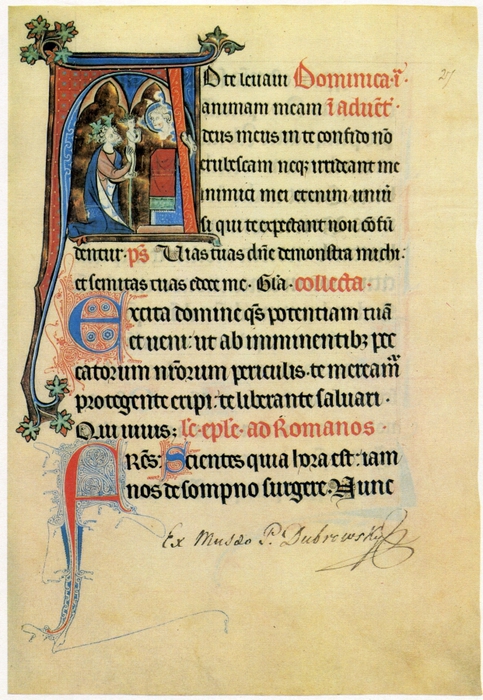 27
AD te leuaui Dominica .i.
animam meam i aduēt
deus meus in te confido nō
erubescam neqʒ irrideant me
inimici mei etenim uniu̅
si qui te expectant non cōfū
dentur. p̄s Uias tuas dn̄e demonstra michi:
et semitas tuas edoce me. Gl̄a. collecta.
Excita domine q̄s potentiam tuā
et ueni: ut ab imminentibʒ pec
catorum nr̄orum periculis. te meream̄
protegente eripi: te liberante saluari.
Qui uiuis: lc̄ ep̄le. ad Romanos
FRēs: Scientes quia hora est: iam
nos de sompno surgere. Nunc
Ex Musæo P. Dubrowsky